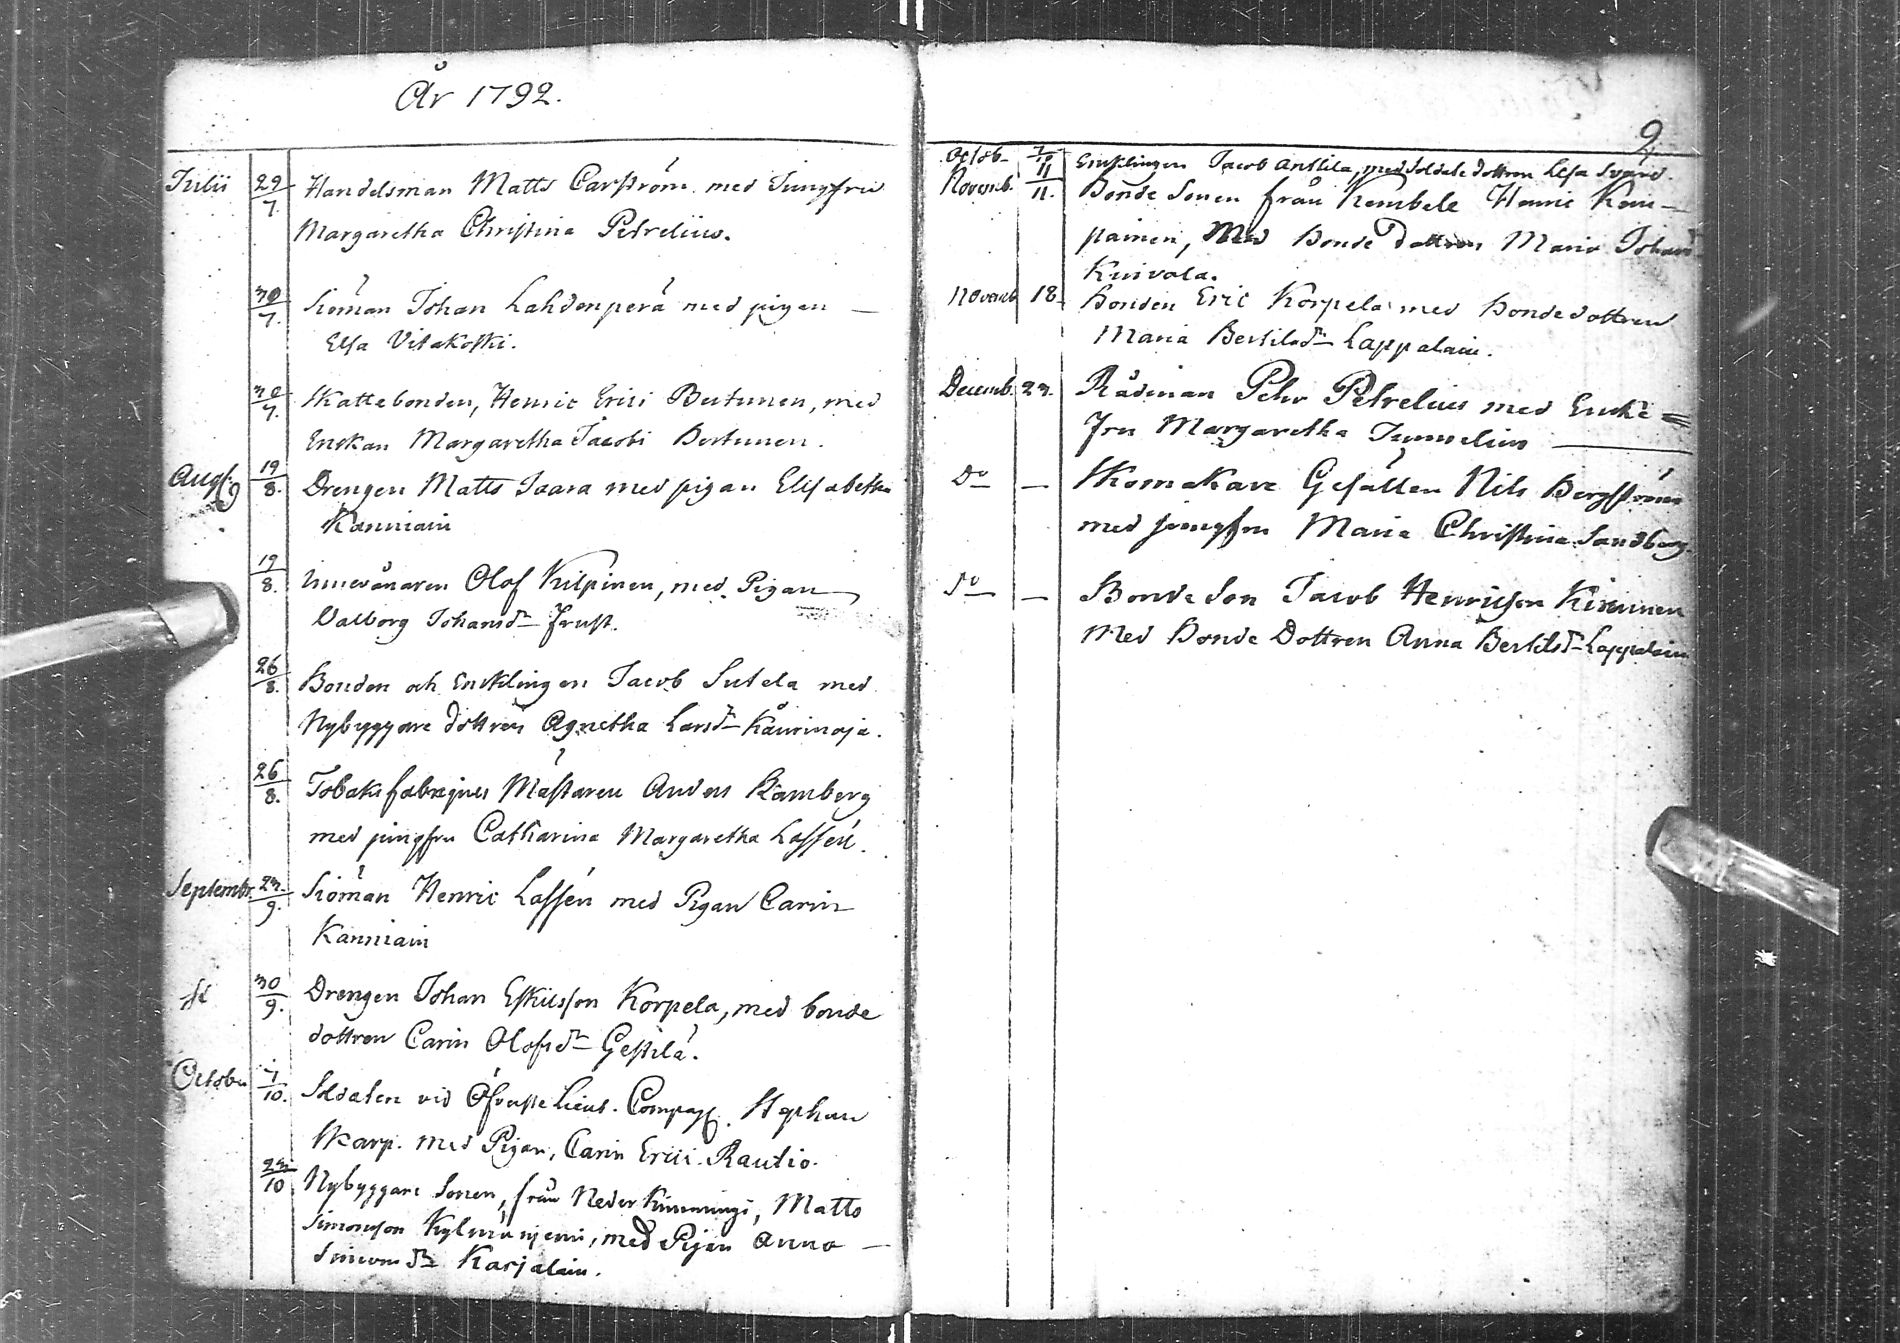 År 1792.
Julii 29/7. Handelsman Matts Carström med Jungfru
Margaretha Christina Petrelius.
30/7. Siöman Johan Lahdenperä med pigan —
Elsa Vitakoski.
30/7. Skattebonden, Henric Erici Bertunen, med
Enkan Margaretha Jacobi Bertunen.
Aug. 19/8. Drengen Matts Isara med pigan Elisabetha
Kanniain
19/8. Innevånaren Olof Kilpinen, med Pigan
Valborg Johansdr Frust.
26/8. Bonden och Encklingen Jacob Sutela med
Nybyggare dottren Agnetha Larsdr Kåurinoja.
26/8. Tobaks fabriques Mästaren Anders Ramberg
med jungfru Catharina Margaretha Lassén.
Septembr. 23/9. Siöman Henric Lassén med Pigan Carin
Kanniain
30/9. Drengen Johan Eskilsson Korpela, med bonde
dottren Carin Olofsdr Gestilä.
October 7/10. Soldaten vid Öfverste Lieut. Compag. Stephan
Skarp. med Pigan, Carin Erici Rautio.
23/10. Nybyggare Sonen, från Neder Kimmingi, Matts
Simonsson Kylmäniemi, med Pigan Anna —
Simonsdr Karjalain.
2
Octob. 7/10 Encklingen Jacob Anttila, med Soldate dottren Lisa Svärd.
Novemb. 11/11. Bonde Sonen från Kembele Henric Kem-
painen, Med Bonde Dottren Maria Johansdr
Kuivala.
Novemb. 18 Bonden Eric Korpela med Bonde dottren
Maria Bertilsdr Lappalain.
Decemb. 23. Rådman Pehr Petrelius med Encke=
Fru Margaretha —
Do — Skomakare Gesällen Nils Bergström
med jungfru Maria Christina Sandberg.
Do — Bonde Son Jacob Henricsson Kinnunen
Med Bonde Dottren Anna Bertilsdr Lappalain